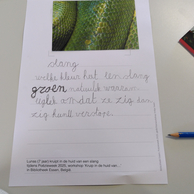 slang
welke kleur hat een slang
groen natuurlijk waarom
omdat ze zig dan
zig kunt verstope.
Lukas (7 jaar) kruipt in de huid van een slang
tijdens Poëzieweek 2025, workshop 'Kruip in de huid van ...'
in Bibliotheek Essen, België.